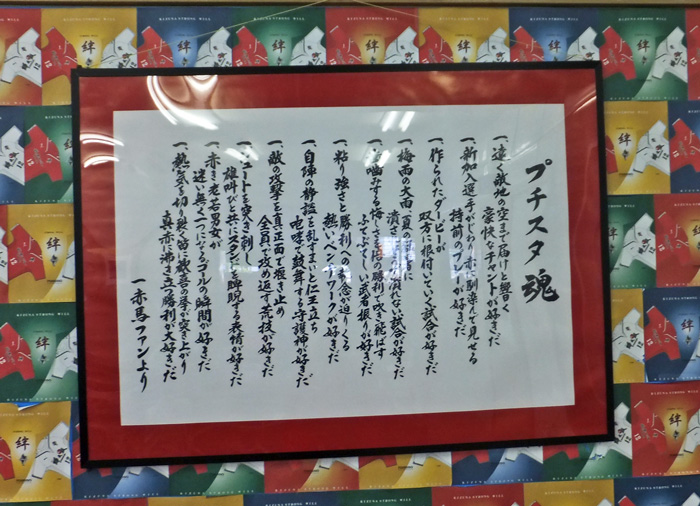 プチスタ魂
一、遠く敵地の空まで届けと響く
豪快なチャントが好きだ
一、新加入選手がじわりと赤に馴染んで見せる
持前のプレーが好きだ
一、作られたダービーが
双方に根付いていく試合が好きだ
一、梅雨の大雨、夏の
試合が好きだ
勝利で吹き飛ばす
ふてぶてしい武者振りが好きだ
一、粘り強さと勝利への執念が迫りくる
熱いベンチワークが好きだ
一、自陣の静謐を乱すまいと仁王立ち
咆哮で鼓舞する守護神が好きだ
一、敵の攻撃を真正面で堰き止め
全員で攻め返す荒技が好きだ
一、シュートを突き刺し
雄叫びと共にスタンドを睥睨する表情が好きだ
一、赤き老若男女が
迷い無く一つになるゴールの瞬間が好きだ
一、熱気を切り裂く笛に歓喜の拳が突き上がり
真赤に沸き立つ勝利が大好きだ
一赤馬ファンより
絆
KIZUNA STRONG WILL